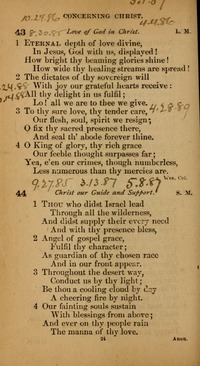 10.24.86 CONCERNING CHRIST. 4.4.86
43 8.30.85 Love of God in Christ. L. M.
1 ETERNAL depth of love divine,
In Jesus, God with us, displayed!
How bright thy beaming glories shine!
How wide thy healing streams are spread!
2 The dictates of thy sovereign will
With joy our grateful hearts receive:
All thy delight in us fulfil;
Lo! all we are to thee we give.
3 To thy sure love, thy tender care, 4.28.89
Our flesh, soul, spirit we resign;
O fix thy sacred presence there,
And seal th' abode forever thine.
4 O King of glory, thy rich grace
Our feeble thought surpasses far;
Yea, e'en our crimes, though numberless,
Less numerous than thy mercies are.
Wes. Col.
9.27.85 3.13.87 5.8.87
44 Christ our Guide and Support. S. M.
1 THOU who didst Israel lead
Through all the wilderness,
And didst supply their every need
And with thy presence bless,
2 Angel of gospel grace,
Fulfil thy character;
As guardian of thy chosen race
And in our front appear.
3 Throughout the desert way,
Conduct us by thy light;
Be thou a cooling cloud by day
A cheering fire by night.
4 Our fainting souls sustain
With blessings from above;
And ever on thy people rain
The manna of thy love.
24 Anon.